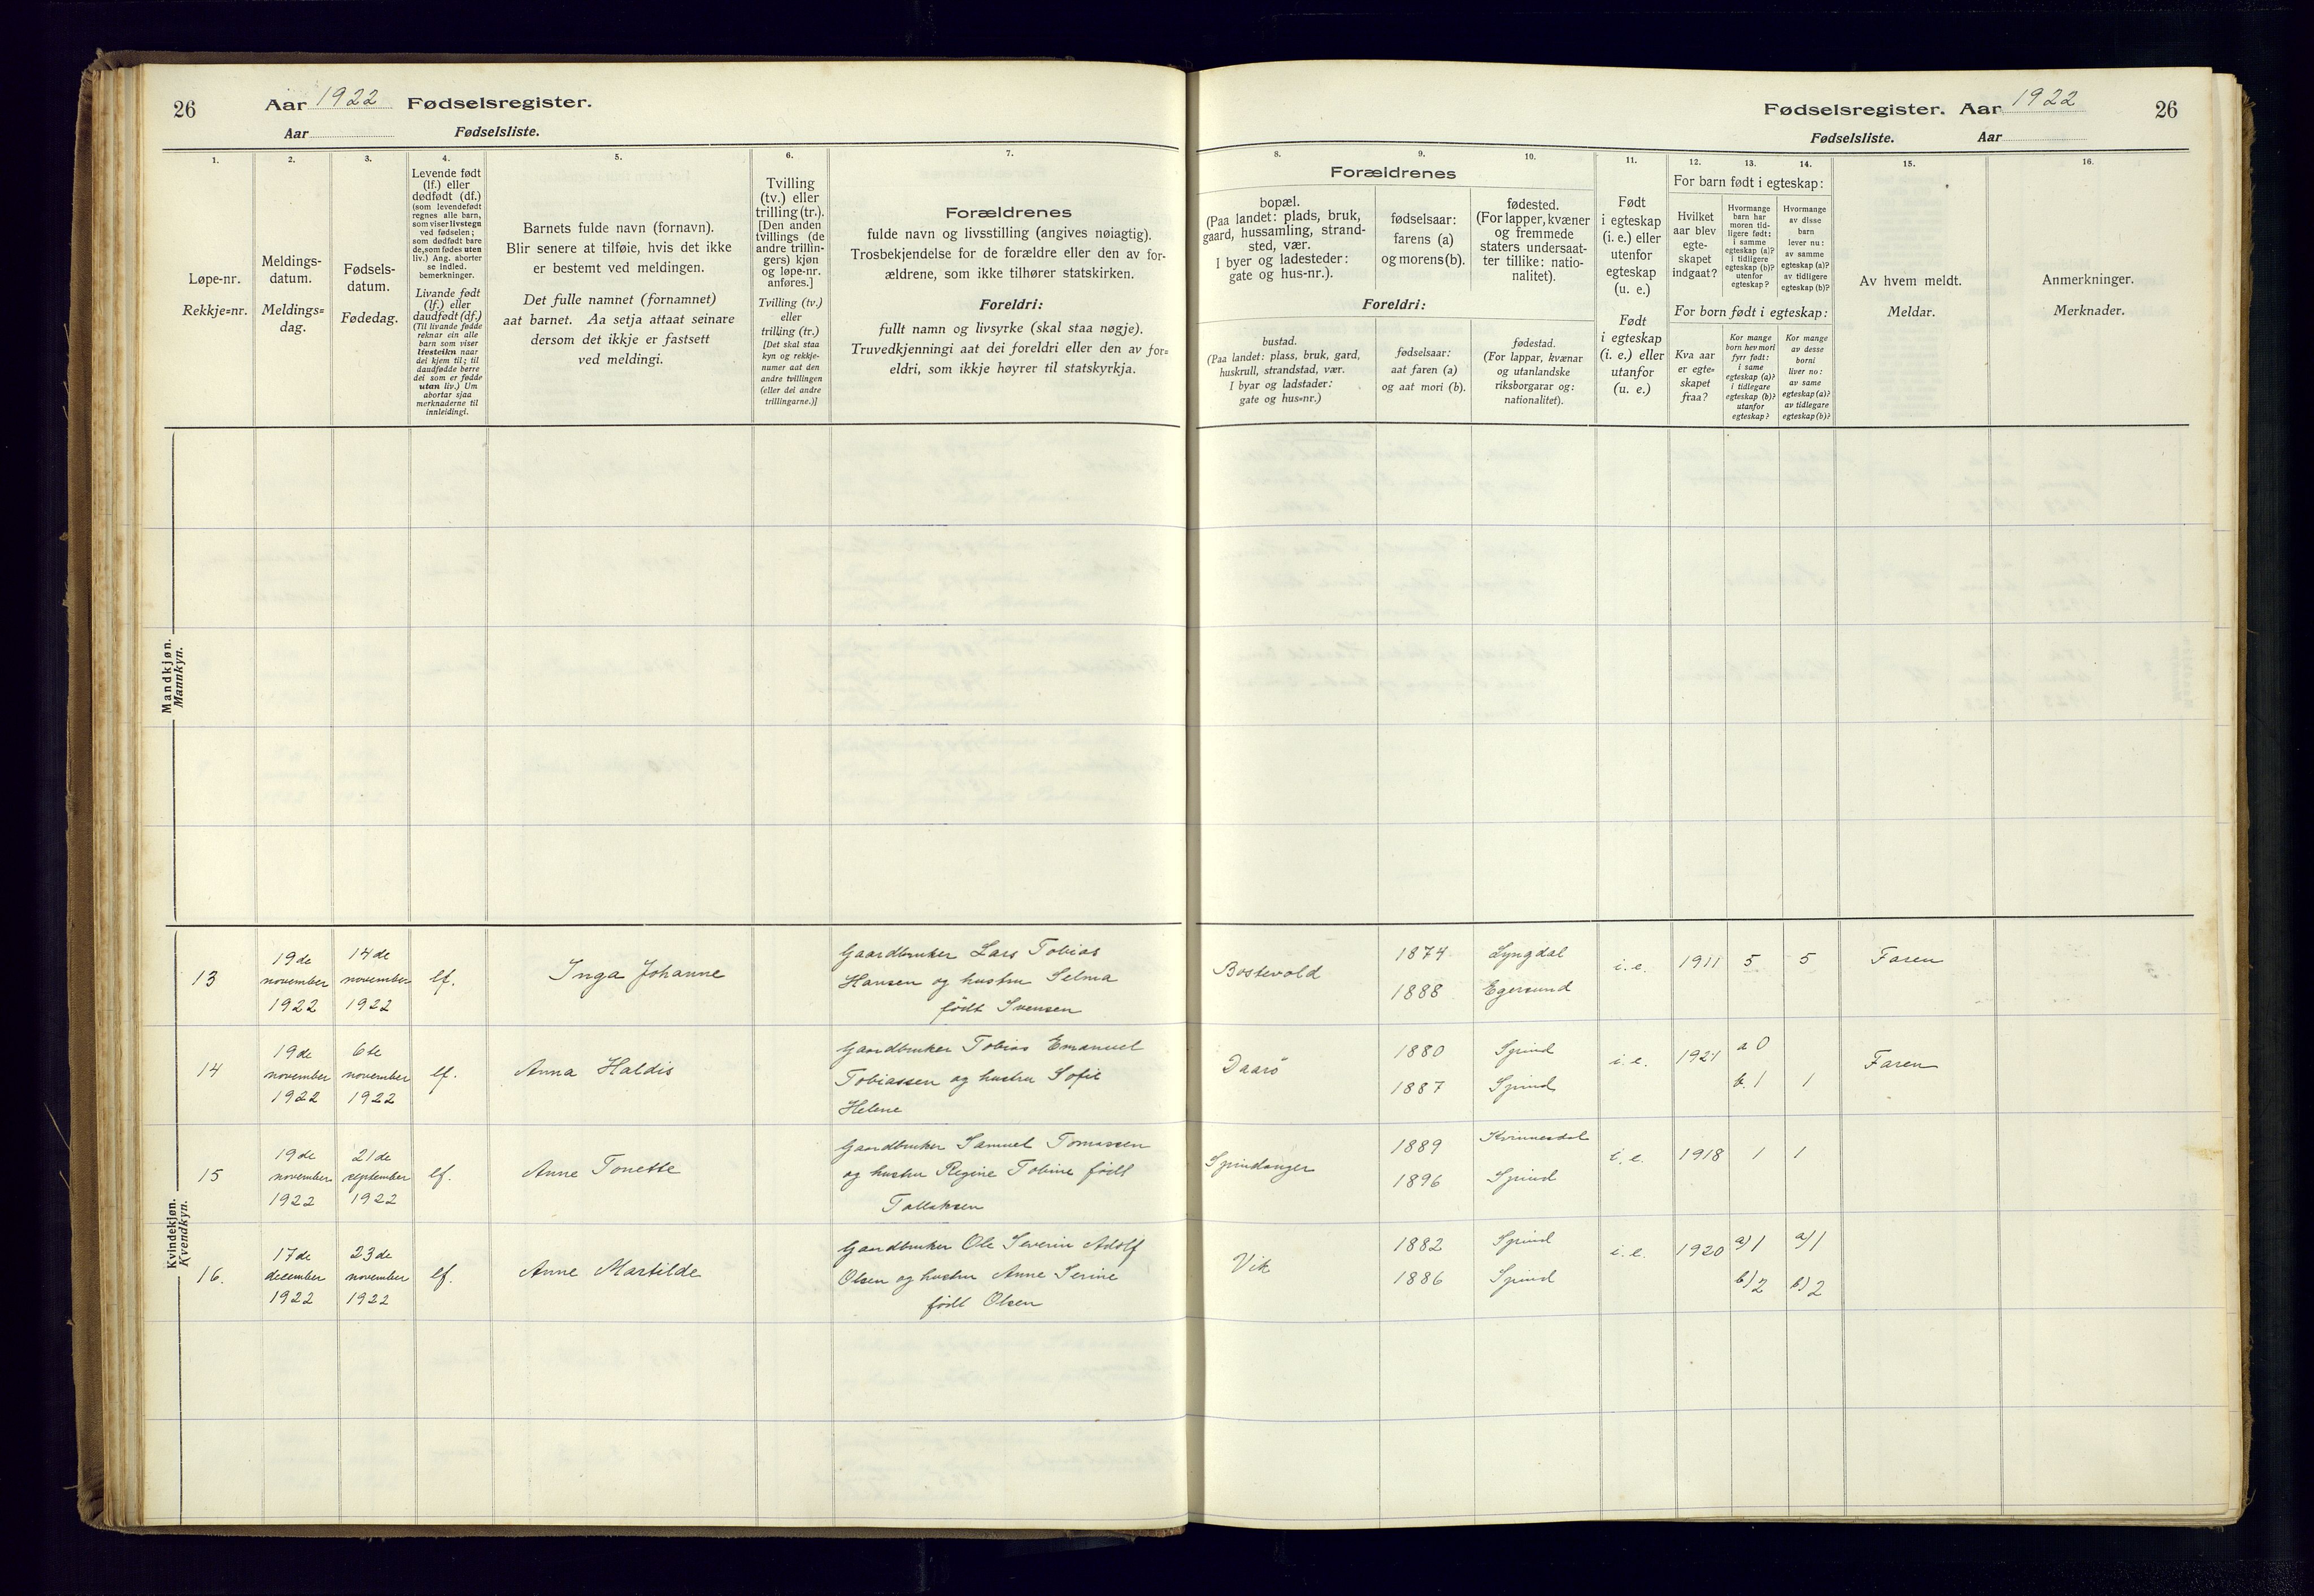 26
Aar 1922 Fødselsregister.
Aar Fødselsliste.
Fødselsregister. Aar 1922
26
Fødselsliste. Aar
1.
2.
3.
4.
5.
6.
7.
8.
9.
10.
11.
12.
13.
14.
15.
16.
Løpe-nr.
Rekkje=nr.
Meldings-
datum.
Meldings=
dag.
Fødsels-
datum.
Fødedag.
Levende født
(lf.) eller
dødfødt (df.)
(som levendefødt
regnes alle barn,
som viser livstegn
ved fødselen;
som dødfødt bare
de, som fødes uten
liv.) Ang. aborter
se indled.
bemerkninger.
Livande født
(lf.) eller
daudfødt (df.)
(Til livande fødde
reknar ein alle
barn som viser
livsteikn naar
dei kjem til; til
daudfødde berre
dei som er fødde
utan liv.) Um
abortar sjaa
merknaderne til
innleidingi.
Barnets fulde navn (fornavn).
Blir senere at tilføie, hvis det ikke
er bestemt ved meldingen.
Det fulle namnet (fornamnet)
aat barnet. Aa setja attaat seinare
dersom det ikkje er fastsett
ved meldingi.
Tvilling
(tv.) eller
trilling (tr.).
[Den anden
tvillings (de
andre trillin-
gers) kjøn
og løpe-nr.
anføres.]
Tvilling (tv.)
eller
trilling (tr.)
[Det skal staa
kyn og rekkje-
numer aat den
andre tvillingen
(eller dei andre
trillingarne.)]
Forældrenes
fulde navn og livsstilling (angives nøiagtig).
Trosbekjendelse for de forældre eller den av for-
ældrene, som ikke tilhører statskirken.
Foreldri:
fullt namn og livsyrke (skal staa nøgje).
Truvedkjenningi aat dei foreldri eller den av for=
eldri, som ikkje høyrer til statskyrkja.
Forældrenes
bopæl.
(Paa landet: plads, bruk,
gaard, hussamling, strand-
sted, vær.
I byer og ladesteder:
gate og hus-nr.).
fødselsaar:
farens (a)
og morens (b).
fødested.
(For lapper, kvæner
og fremmede
staters undersaat-
ter tillike: natio-
nalitet).
Foreldri:
bustad.
(Paa landet: plass, bruk, gard,
huskrull, strandstad, vær.
I byar og ladstader:
gate og hus=nr.)
fødselsaar:
aat faren (a)
og aat mori (b).
fødestad.
(For lappar, kvænar
og utanlandske
riksborgarar og:
nationalitet).
Født
i egteskap
(i. e.) eller
utenfor
egteskap
(u. e.)
Født
i egteskap
(i. e.) eller
utanfor
(u. e.)
For barn født i egteskap:
Hvilket
aar blev
egte-
skapet
indgaat?
Hvormange
barn har
moren tid-
ligere født:
i samme
egteskap (a)?
i tidligere
egteskap (b)?
utenfor
egteskap?
Hvormange
av disse
barn
lever nu:
av samme
egteskap (a)?
av tidligere
egteskap (b)?
For born født i egteskap:
Kva aar
er egte=
skapet
fraa?
Kor mange
born hev mori
fyrr født:
i same
egteskap (a)?
i tidlegare
egteskap (b)?
utanfor
egteskap?
Kor mange
av desse
borni
liver no:
av same
egteskap (a)?
av tidlegare
egteskap (b)?
Av hvem meldt.
Meldar.
Anmerkninger.
Merknader.
Mandkjøn.
Mannkyn.
Kvindekjøn.
Kvendkyn.
13 19de november 1922 14de november 1922 lf. Inga Johanne
Gaardbruker Lars Tobias
Hansen og hustru Selma
født Svensen
Bostevold 1874 Lyngdal i. e. 1911 5 5 Faren
1888 Egersund
14 19de november 1922 6te november 1922 lf. Anna Haldis
Gaardbruker Tobias Emanuel
Tobiassen og hustru Sofie
Helene
Daarø 1880 Spind i. e. 1921 a 0 Faren
1887 Spind b. 1 1
15 19de november 1922 21de september 1922 lf. Anne Tonette
Gaardbruker Samuel Tomassen
og hustru Regine Tobine født
Tallaksen
Spindanger 1889 Kvinnesdal i. e. 1918 1 1
1896 Spind
16. 17de december 1922 23de november 1922 lf. Anne Martilde
Gaardbruker Ole Severin Adolf
Olsen og hustru Anne Serine
født Olsen
Vik 1882 Spind i. e. 1920 a) 1 a) 1
1886 Spind b) 2 b) 2